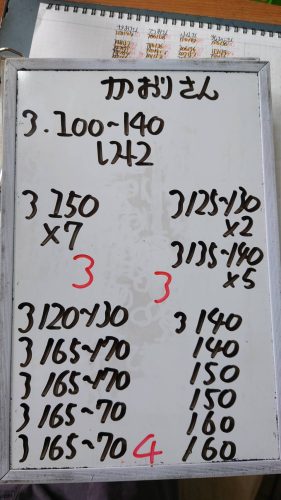 かおりさん
3.100~140
1542
3 150
×7
3
3 125~130
×2
3 135~140
×5
3
3 120~130
3 165~170
3 165~170
3 165~70
3 165~70
4
3 140
140
150
150
160
160